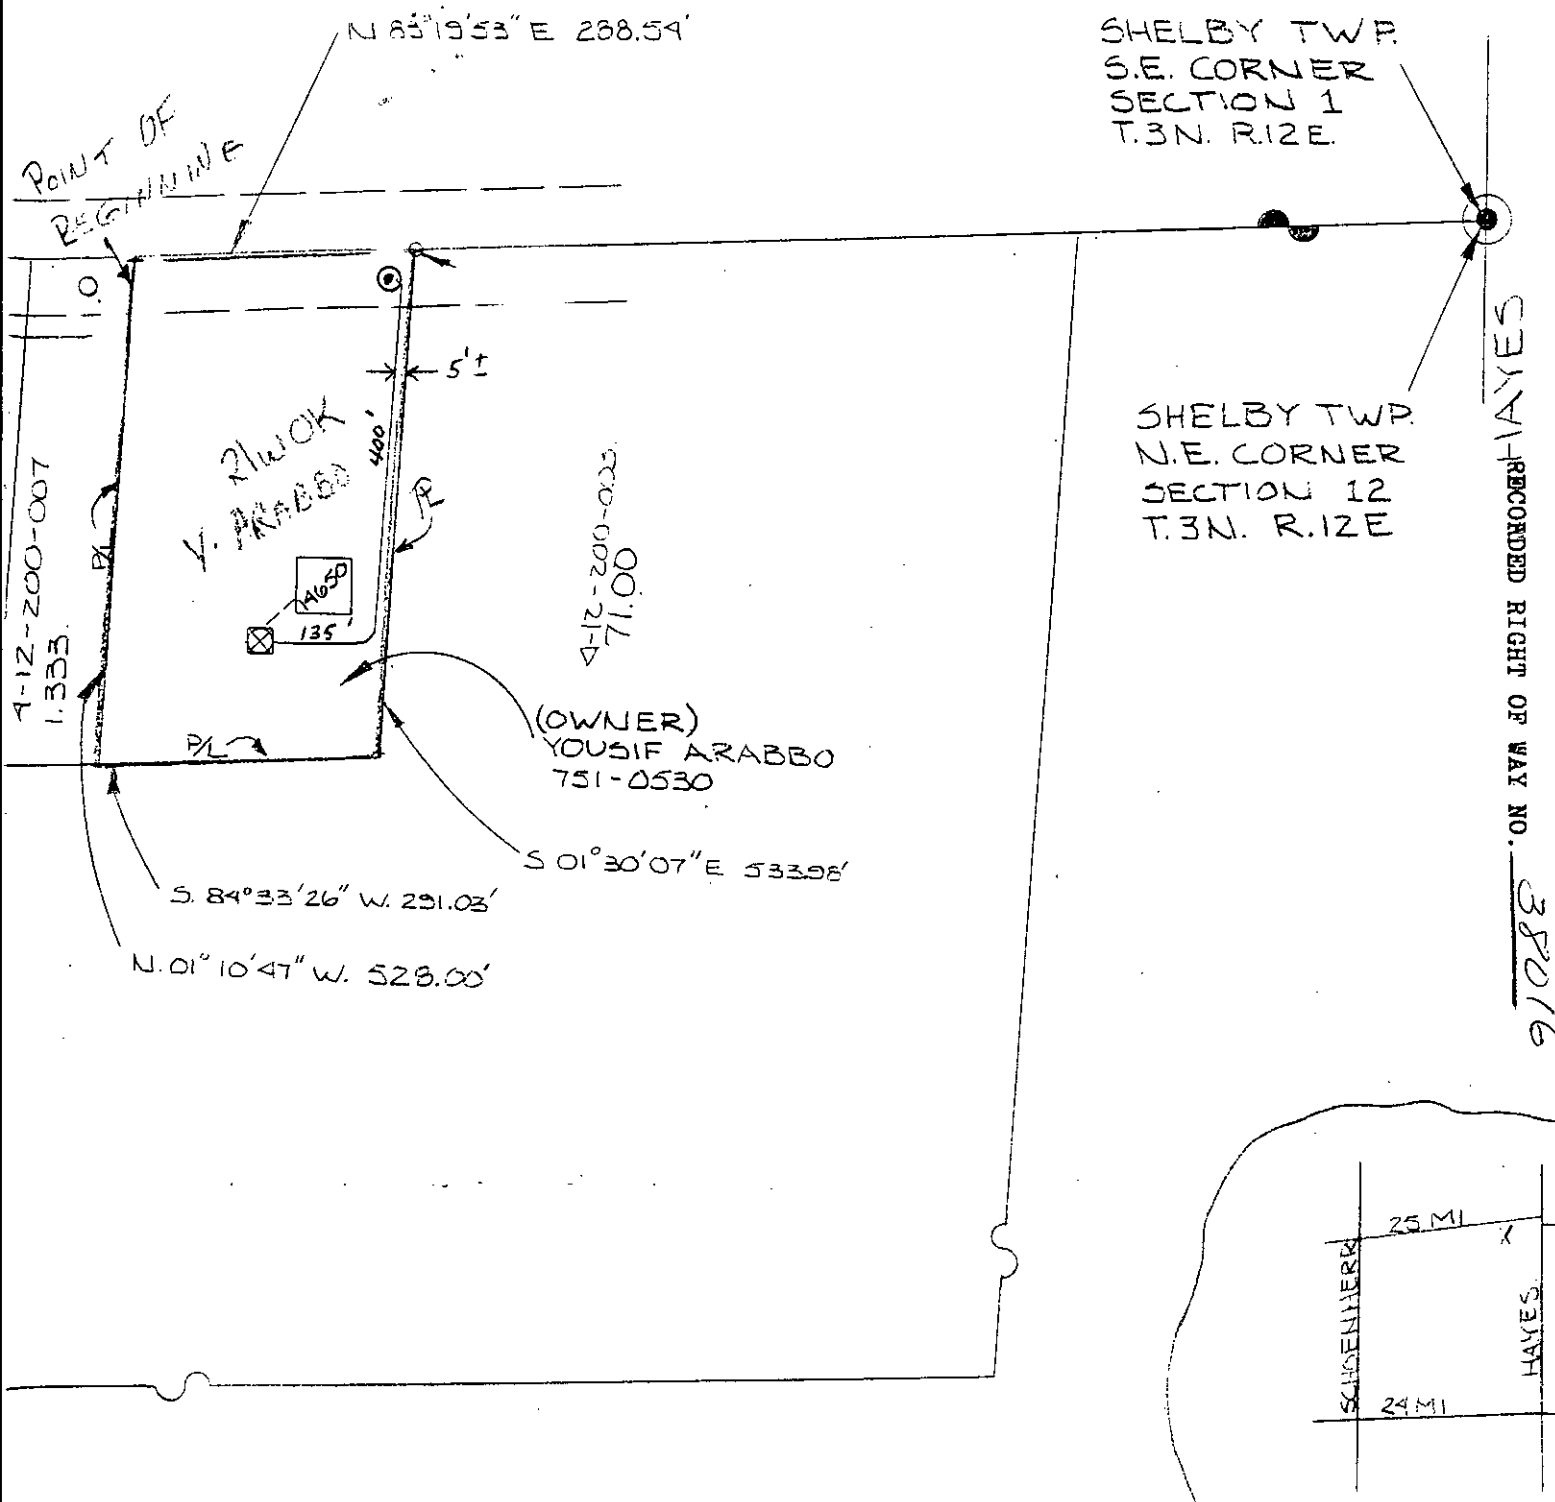 N 83°19'53" E 288.54'
SHELBY TWP.
S.E. CORNER
SECTION 1
T.3N. R.12E.
POINT OF
BEGINNING
1.0
5'±
400'
RIWOK
Y. ARABBO
P/L
4-12-200-007
1.333.
14650
135'
4-12-200-005
71.00
SHELBY TWP.
N.E. CORNER
SECTION 12
T.3N. R.12E
HAYES
RECORDED RIGHT OF WAY NO. 38016
(OWNER)
YOUSIF ARABBO
751-0530
P/L
P/L
S 01°30'07" E 533.98'
S. 84°33'26" W. 291.03'
N. 01°10'47" W. 528.00'
25 MI
X
SCHOENHERR
HAYES
24 MI